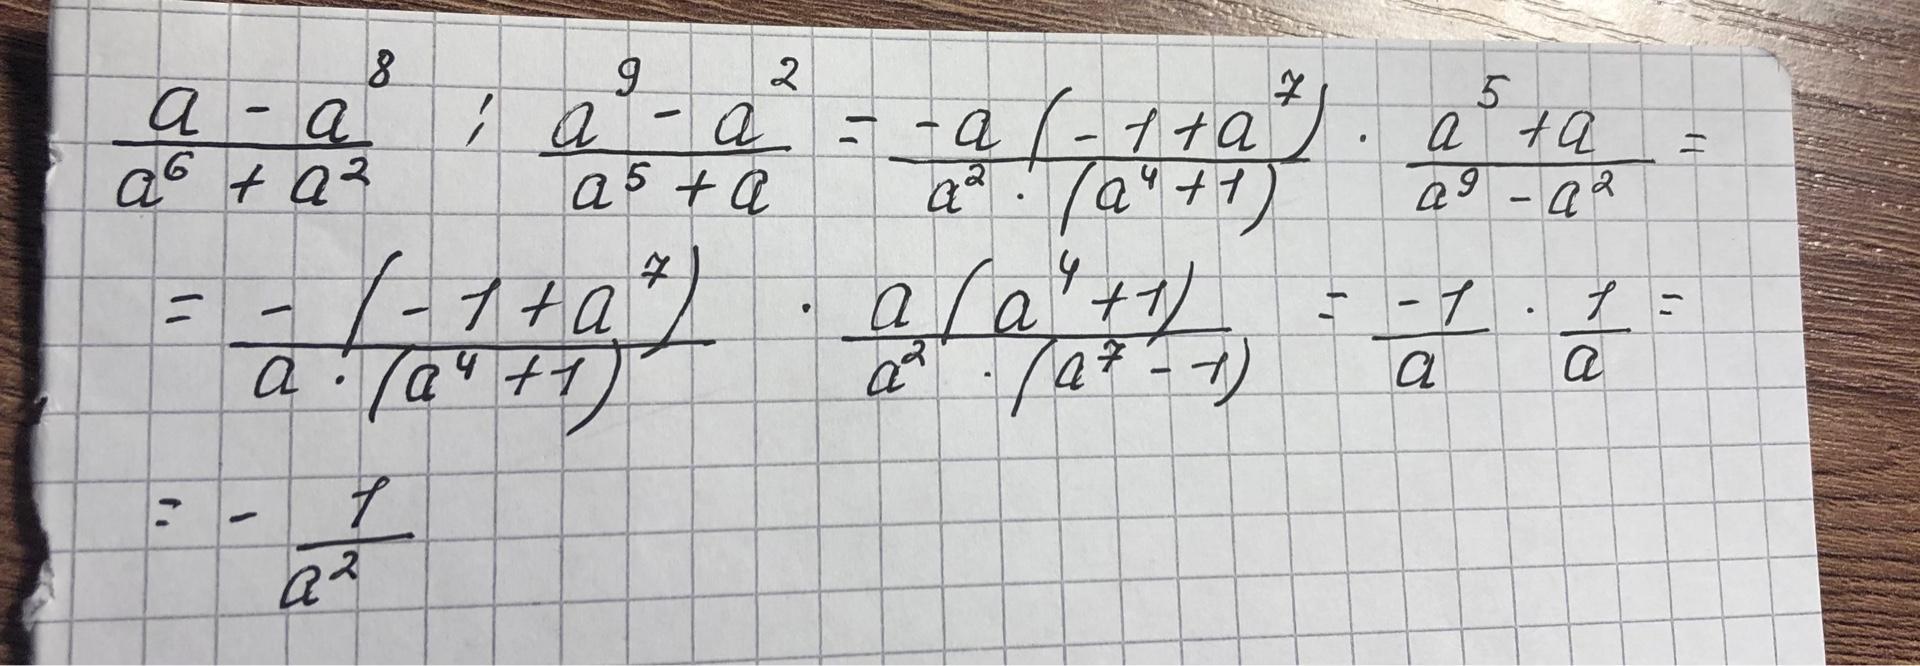 (a - a⁸)/(a⁶ + a²) : (a⁹ - a²)/(a⁵ + a) = (-a(-1+a⁷))/(a² · (a⁴+1)) · (a⁵+a)/(a⁹-a²) =
= (-(-1+a⁷))/(a · (a⁴+1)) · (a(a⁴+1))/(a² · (a⁷-1)) = (-1)/a · 1/a =
= - 1/a²